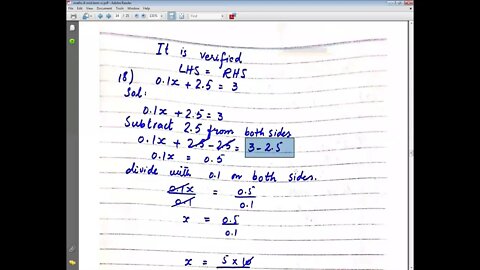 It is verified
LHS = RHS
18) 0.1x + 2.5 = 3
Sol:
0.1x + 2.5 = 3
Subtract 2.5 from both sides
0.1x + 2.5 - 2.5 = 3 - 2.5
0.1x = 0.5
divide with 0.1 on both sides.
0.1x / 0.1 = 0.5 / 0.1
x = 0.5 / 0.1
x = 5 × 10